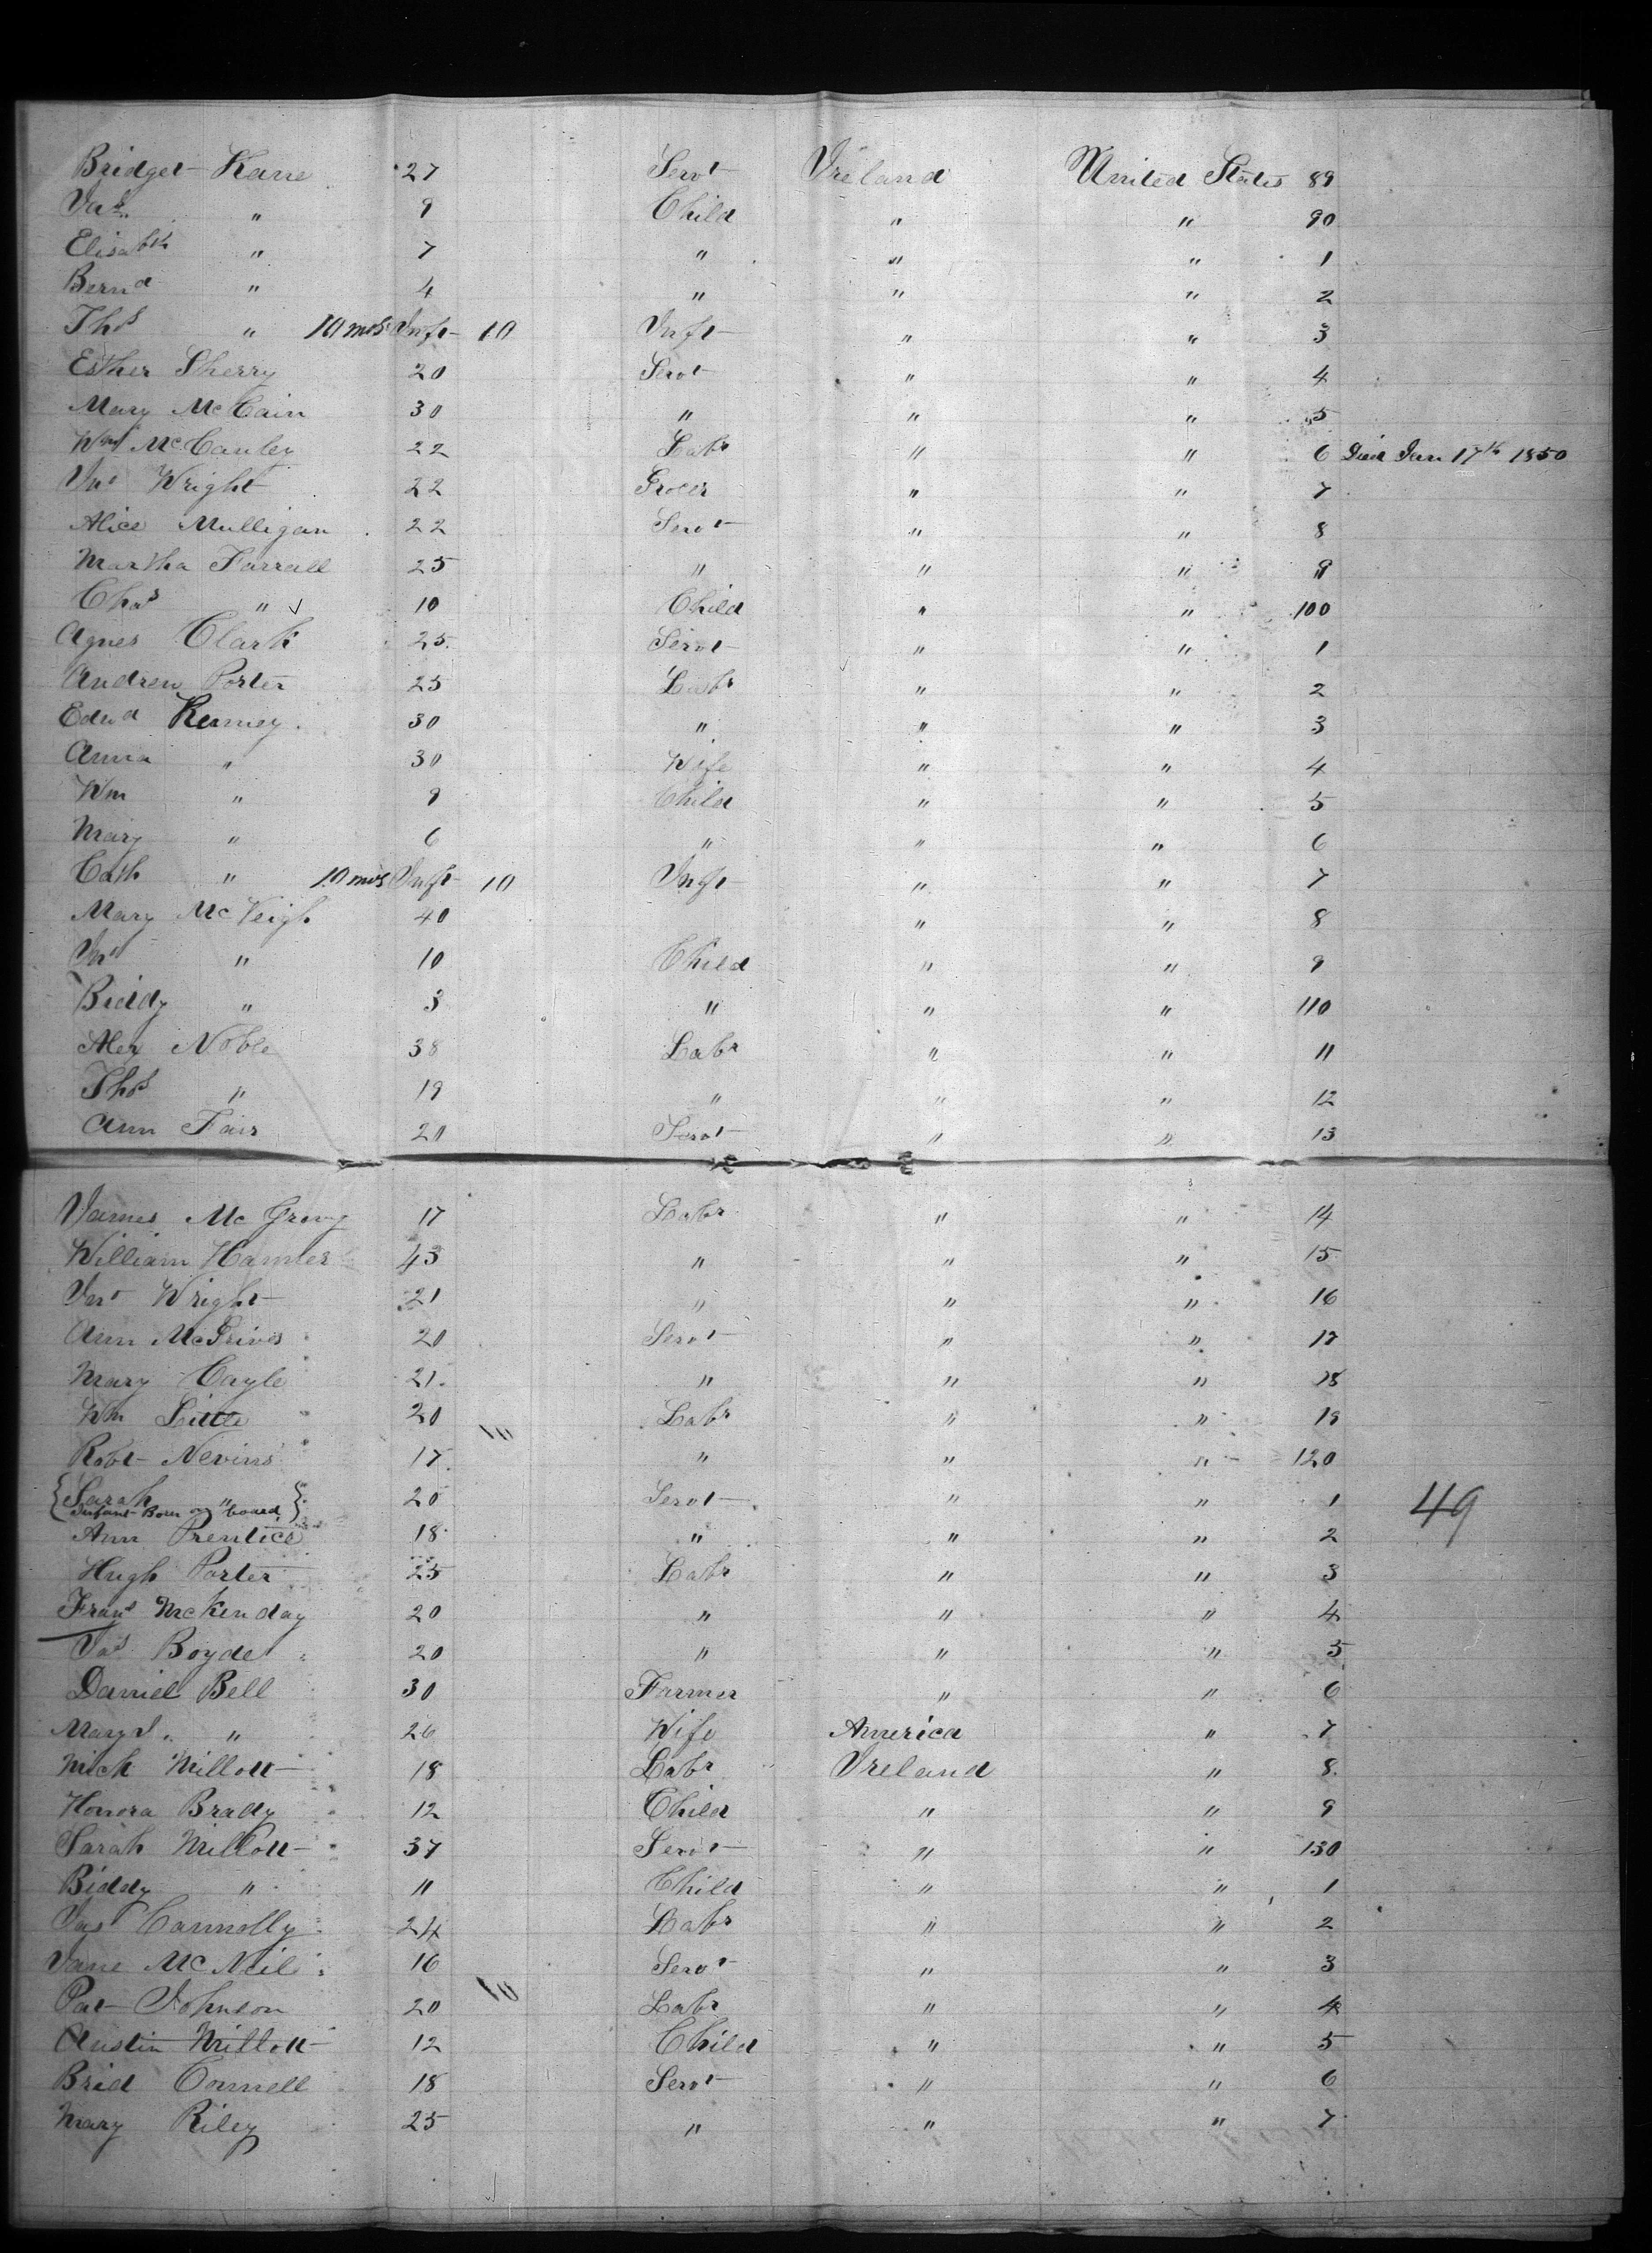 Bridget Kane 27 Servt Ireland United States 89
Jas " 9 Child " " 90
Elisabth " 7 " " " 1
Bernd " 4 " " " 2
Thos " 10 mos Inft 10 Inft " " 3
Esther Sherry 20 Servt " " 4
Mary McCain 30 " " " 5
Wm McCauley 22 Labr " " 6 Died Jan 17th 1850
Jno Wright 22 Grocer " " 7
Alice Mulligan 22 Servt " " 8
Martha Farrall 25 " " " 9
Chas " 10 Child " " 100
Agnes Clark 25 Servt " " 1
Andrew Porter 25 Labr " " 2
Edwd 30 " " " 3
Anna " 30 Wife " " 4
Wm " 9 Child " " 5
Mary " 6 " " " 6
Cath " 10 mos Inft 10 Inft " " 7
Mary McVeigh 40 " " 8
Jno " 10 Child " " 9
Biddy " 3 " " " 110
Alex Noble 38 Labr " " 11
Thos " 19 " " " 12
Ann Fair 20 Servt " " 13
James Mc 17 Labr " " 14
William 43 " " " 15
Wright 21 " " " 16
Ann 20 Servt " " 17
Mary Cayle 21 " " " 18
Wm Little 20 10 Labr " " 19
Robt Nevins 17 " " " 120
{Sarah " } 20 Servt " " 1 49
Infant Born on board
Ann Prentice 18 " " " 2
Hugh Porter 25 Labr " " 3
Frans McKenday 20 " " " 4
Jas Boyde 20 " " " 5
Daniel Bell 30 Farmer " " 6
Margt " 26 Wife America " 7
Mich Millott 18 Labr Ireland " 8
Honora Brady 12 Child " " 9
Sarah Millott 37 Servt " " 130
Biddy " 11 Child " " 1
Jas Connolly 24 Labr " " 2
Jane McNeil 16 Servt " " 3
Pat Johnson 20 10 Labr " " 4
Austin Millott 12 Child " " 5
Brid Connell 18 Servt " " 6
Mary Riley 25 " " " 7